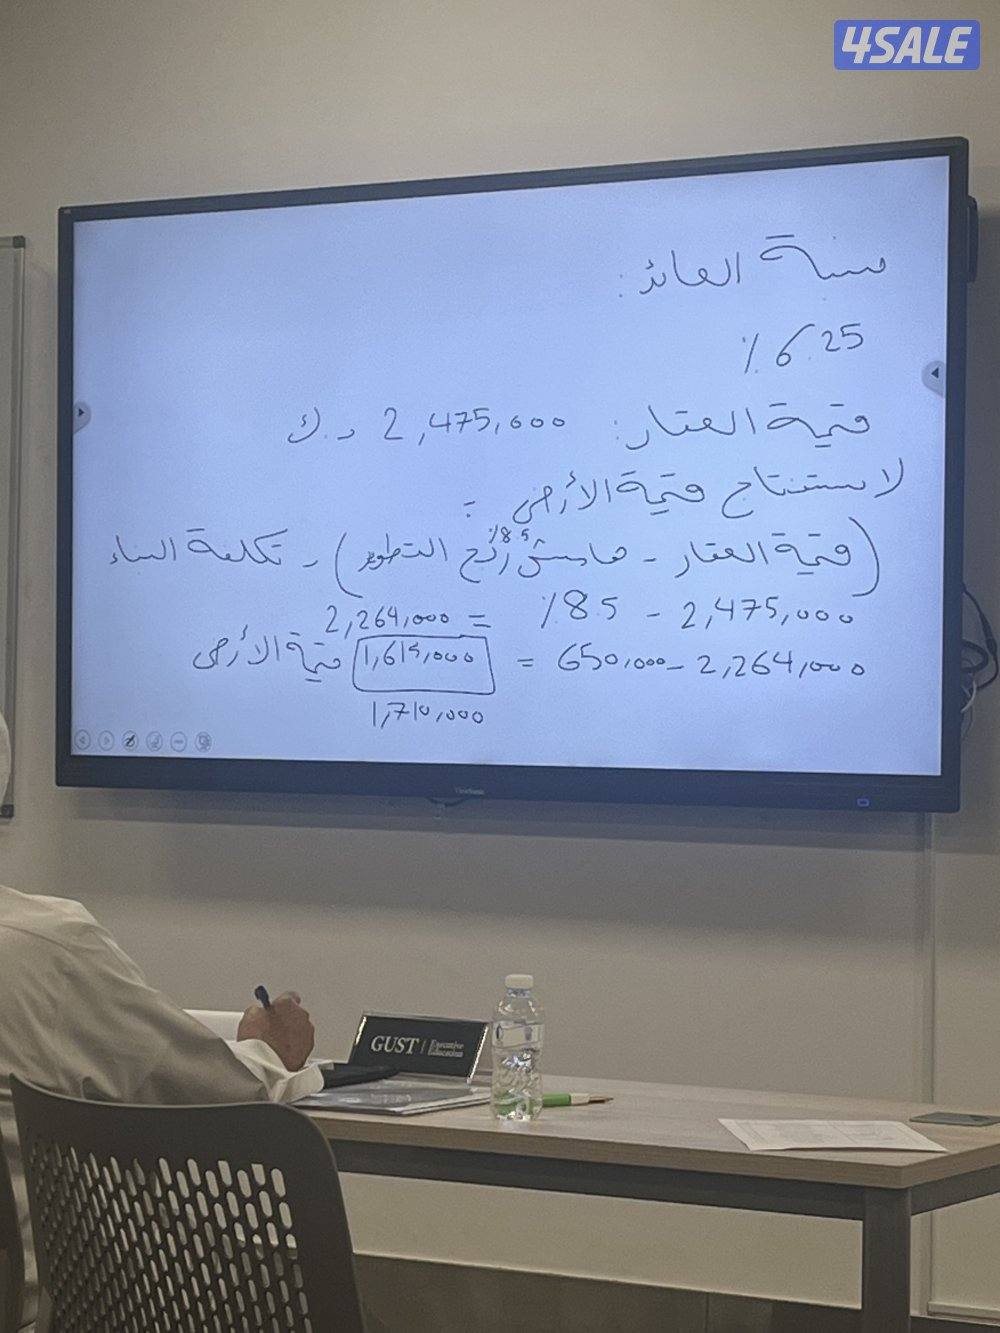 4SALE
نسبة العائد:
6.25 ٪
قيمة العقار: 2,475,000 د.ك
لاستنتاج قيمة الأرض:
(قيمة العقار - هامش ربح التطوير 8.5٪) - تكلفة البناء
2,475,000 - 8.5 ٪ = 2,264,000
2,264,000 - 650,000 = 1,615,000 قيمة الأرض
1,710,000
ViewSonic
GUST / Executive Education